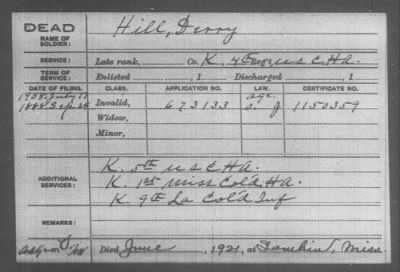 DEAD
NAME OF SOLDIER: Hill, Derry
SERVICE: Late rank, Co. K. 4th Reg't U S C H A.
TERM OF SERVICE: Enlisted , 1 Discharged , 1
DATE OF FILING. CLASS. APPLICATION NO. LAW. CERTIFICATE NO.
1908 July
1888 Sep 25 Invalid, 673133 age. 1150359
Widow,
Minor,
ADDITIONAL SERVICES:
K. 5th U S C H A.
K. 1st Miss Col'd H A.
K. 9th La Col'd Inf
REMARKS:
Died June , 1921, at , Miss.